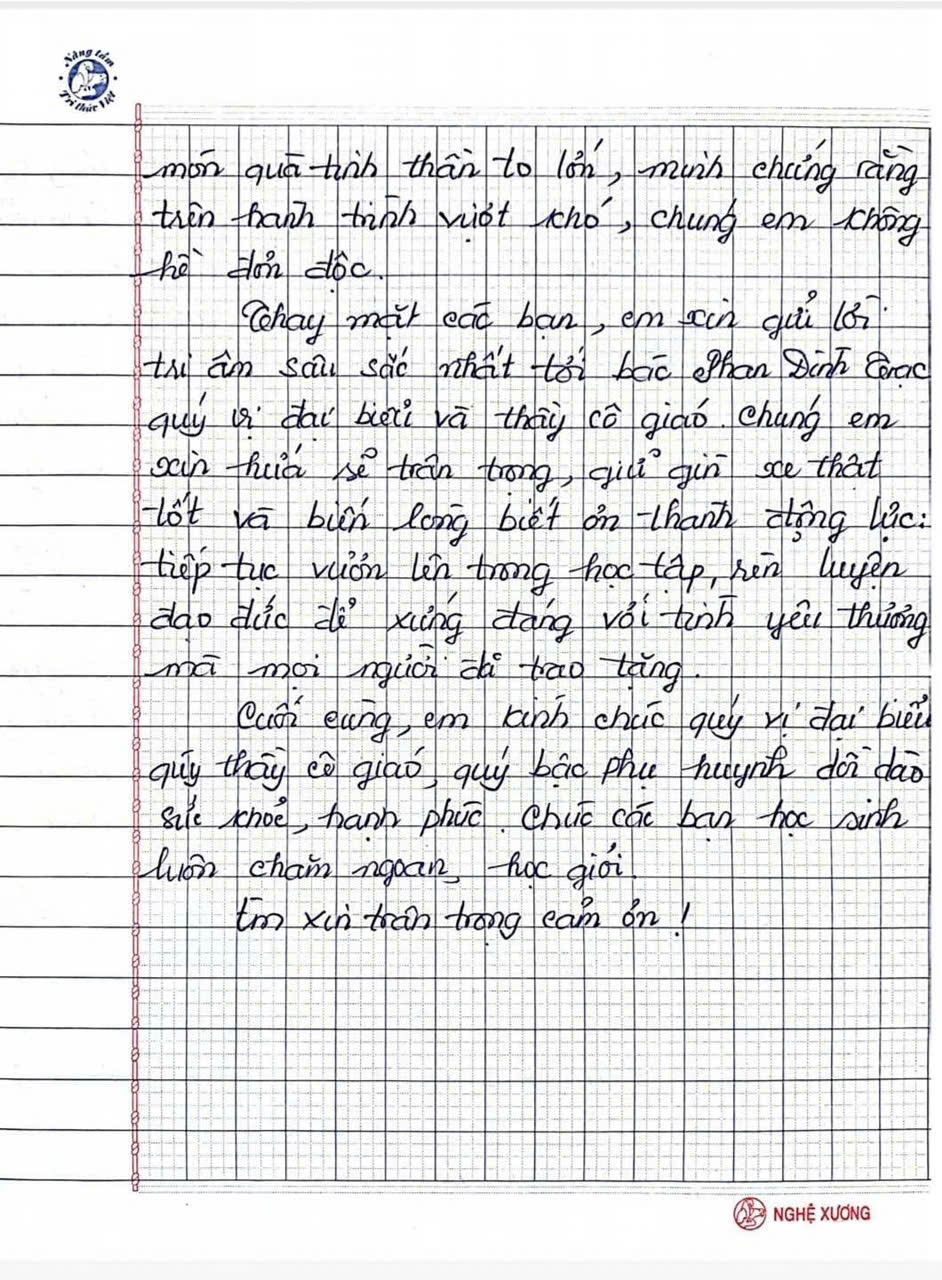 Nâng tầm
Tri thức Việt
món quà tinh thần to lớn, minh chứng rằng
trên hành trình vượt khó, chúng em không
hề đơn độc.
Thay mặt các bạn, em xin gửi lời
tri ân sâu sắc nhất tới bác Phan Đình Trạc
quý vị đại biểu và thầy cô giáo. Chúng em
xin hứa sẽ trân trọng, giữ gìn xe thật
tốt và biến lòng biết ơn thành động lực:
tiếp tục vươn lên trong học tập, rèn luyện
đạo đức để xứng đáng với tình yêu thương
mà mọi người đã trao tặng.
Cuối cùng, em kính chúc quý vị đại biểu
qúy thầy cô giáo, quý bậc phụ huynh dồi dào
sức khoẻ, hạnh phúc. Chúc các bạn học sinh
luôn chăm ngoan, học giỏi.
Em xin trân trọng cảm ơn !
NGHỆ XƯƠNG